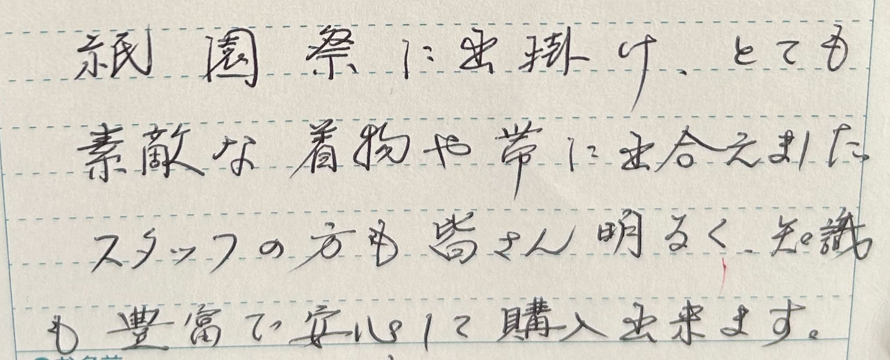 祇園祭に出掛け、とても
素敵な着物や帯に出合えました。
スタッフの方も皆さん明るく、知識
も豊富で安心して購入出来ます。